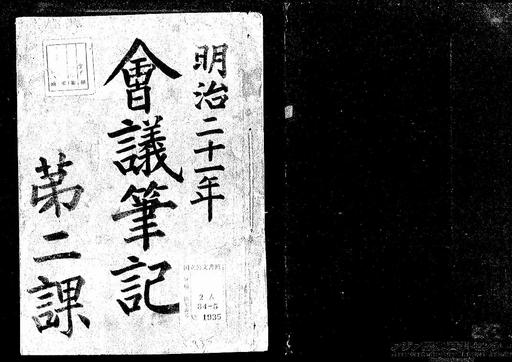 明治二十一年
會議筆記
第二課
国立公文書館
2 A
34-5
1935